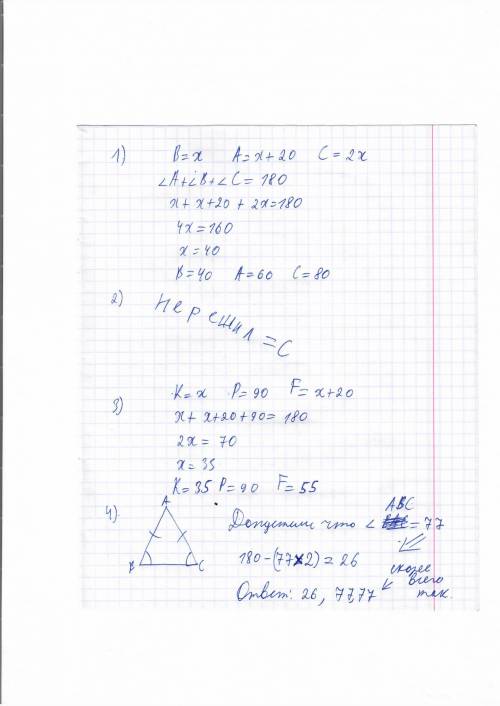 1) B=x A=x+20 C=2x
∠A+∠B+∠C=180
x+x+20+2x=180
4x=160
x=40
B=40 A=60 C=80
2) Не решил =C
3) K=x P=90 F=x+20
x+x+20+90=180
2x=70
x=35
K=35 P=90 F=55
4) A
B C
Допустим что ∠ ABC =77
180-(77×2)=26
скорее
всего
так.
Ответ: 26, 77,77